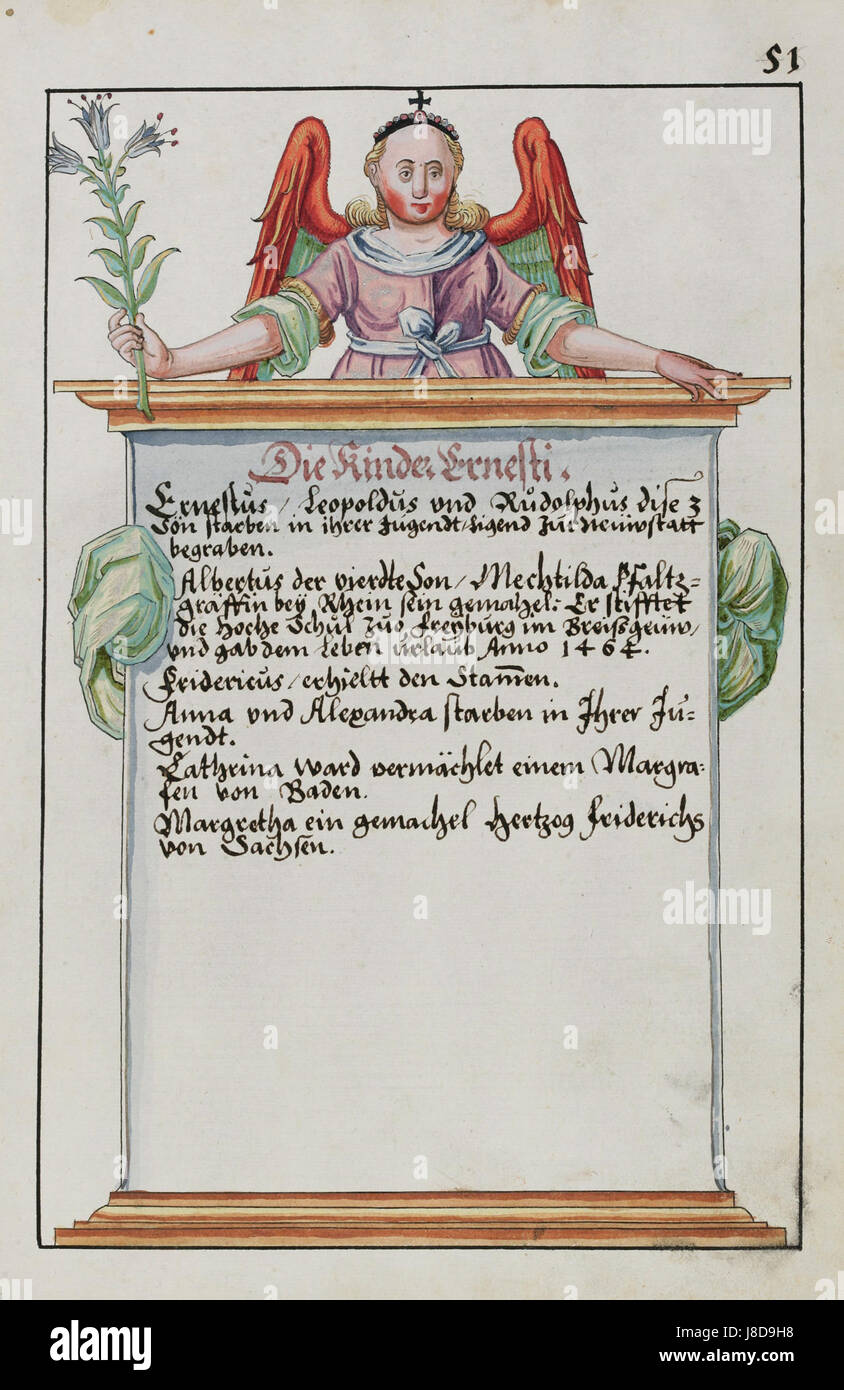 51
Die Kinder Ernesti.
Ernestus / Leopoldus vnd Růdolphus dise 3
Sön starben in ihrer Jugendt / ligend zur Neuwstatt
begraben.
Albertus der vierdte Son / Mechtilda Pfaltz=
gräffin beÿ Rhein sein gemahel: Er stifftet
die Hoche Schul zuo Freyburg im Breißgeuw /
vnd gab dem Leben vrlaub Anno 1464.
Fridericus / erhieltt den Stam̄en.
Anna vnd Alexandra starben in Ihrer Ju=
gendt.
Cathrina ward vermächlet einem Margra=
fen von Baden.
Margretha ein gemachel Hertzog Friderichs
von Sachsen.
alamy
Image ID: J8D9H8
www.alamy.com